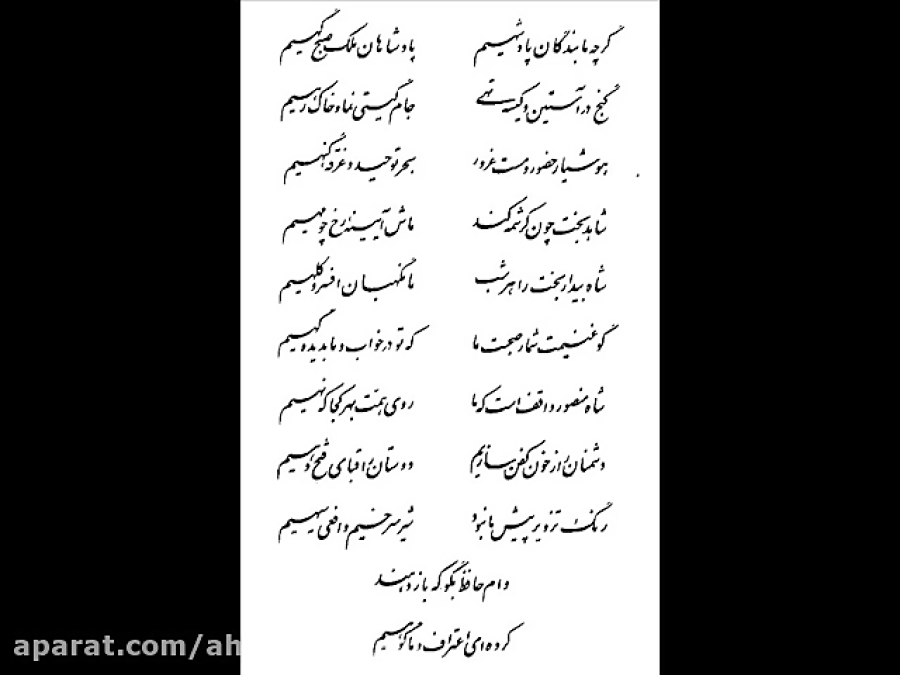 گرچه ما بندگان پادشهیم پادشاهان ملک صبح گهیم
گنج در آستین و کیسه تهی جام گیتی نما و خاک رهیم
هوشیار حضور و مست غرور بحر توحید و غرقه گنهیم
شاهد بخت چون کرشمه کند ماش آیینه رخ چو مهیم
شاه بیدار بخت را هر شب ما نگهبان افسر و کلهیم
گو غنیمت شمار صحبت ما که تو در خواب و ما بدیده گهیم
شاه منصور واقف است که ما روی همت بهر کجا که نهیم
دشمنان را ز خون کفن سازیم دوستان را قبای فتح دهیم
رنگ تزویر پیش ما نبود شیر سرخیم و افعی سیهیم
وام حافظ بگو که باز دهند
کرده‌ای اعتراف و ما گوهیم
aparat.com/ah